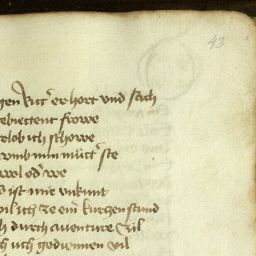 43
gen Ritt' er hort und sach
gebiettent frowe
urlob ich schowe
vmb min mütt' ste
wol od' we
ist mir vnkunt
wil ich ze ein' kurczen stund
h durch auenture zil
ch üch gedienen vil